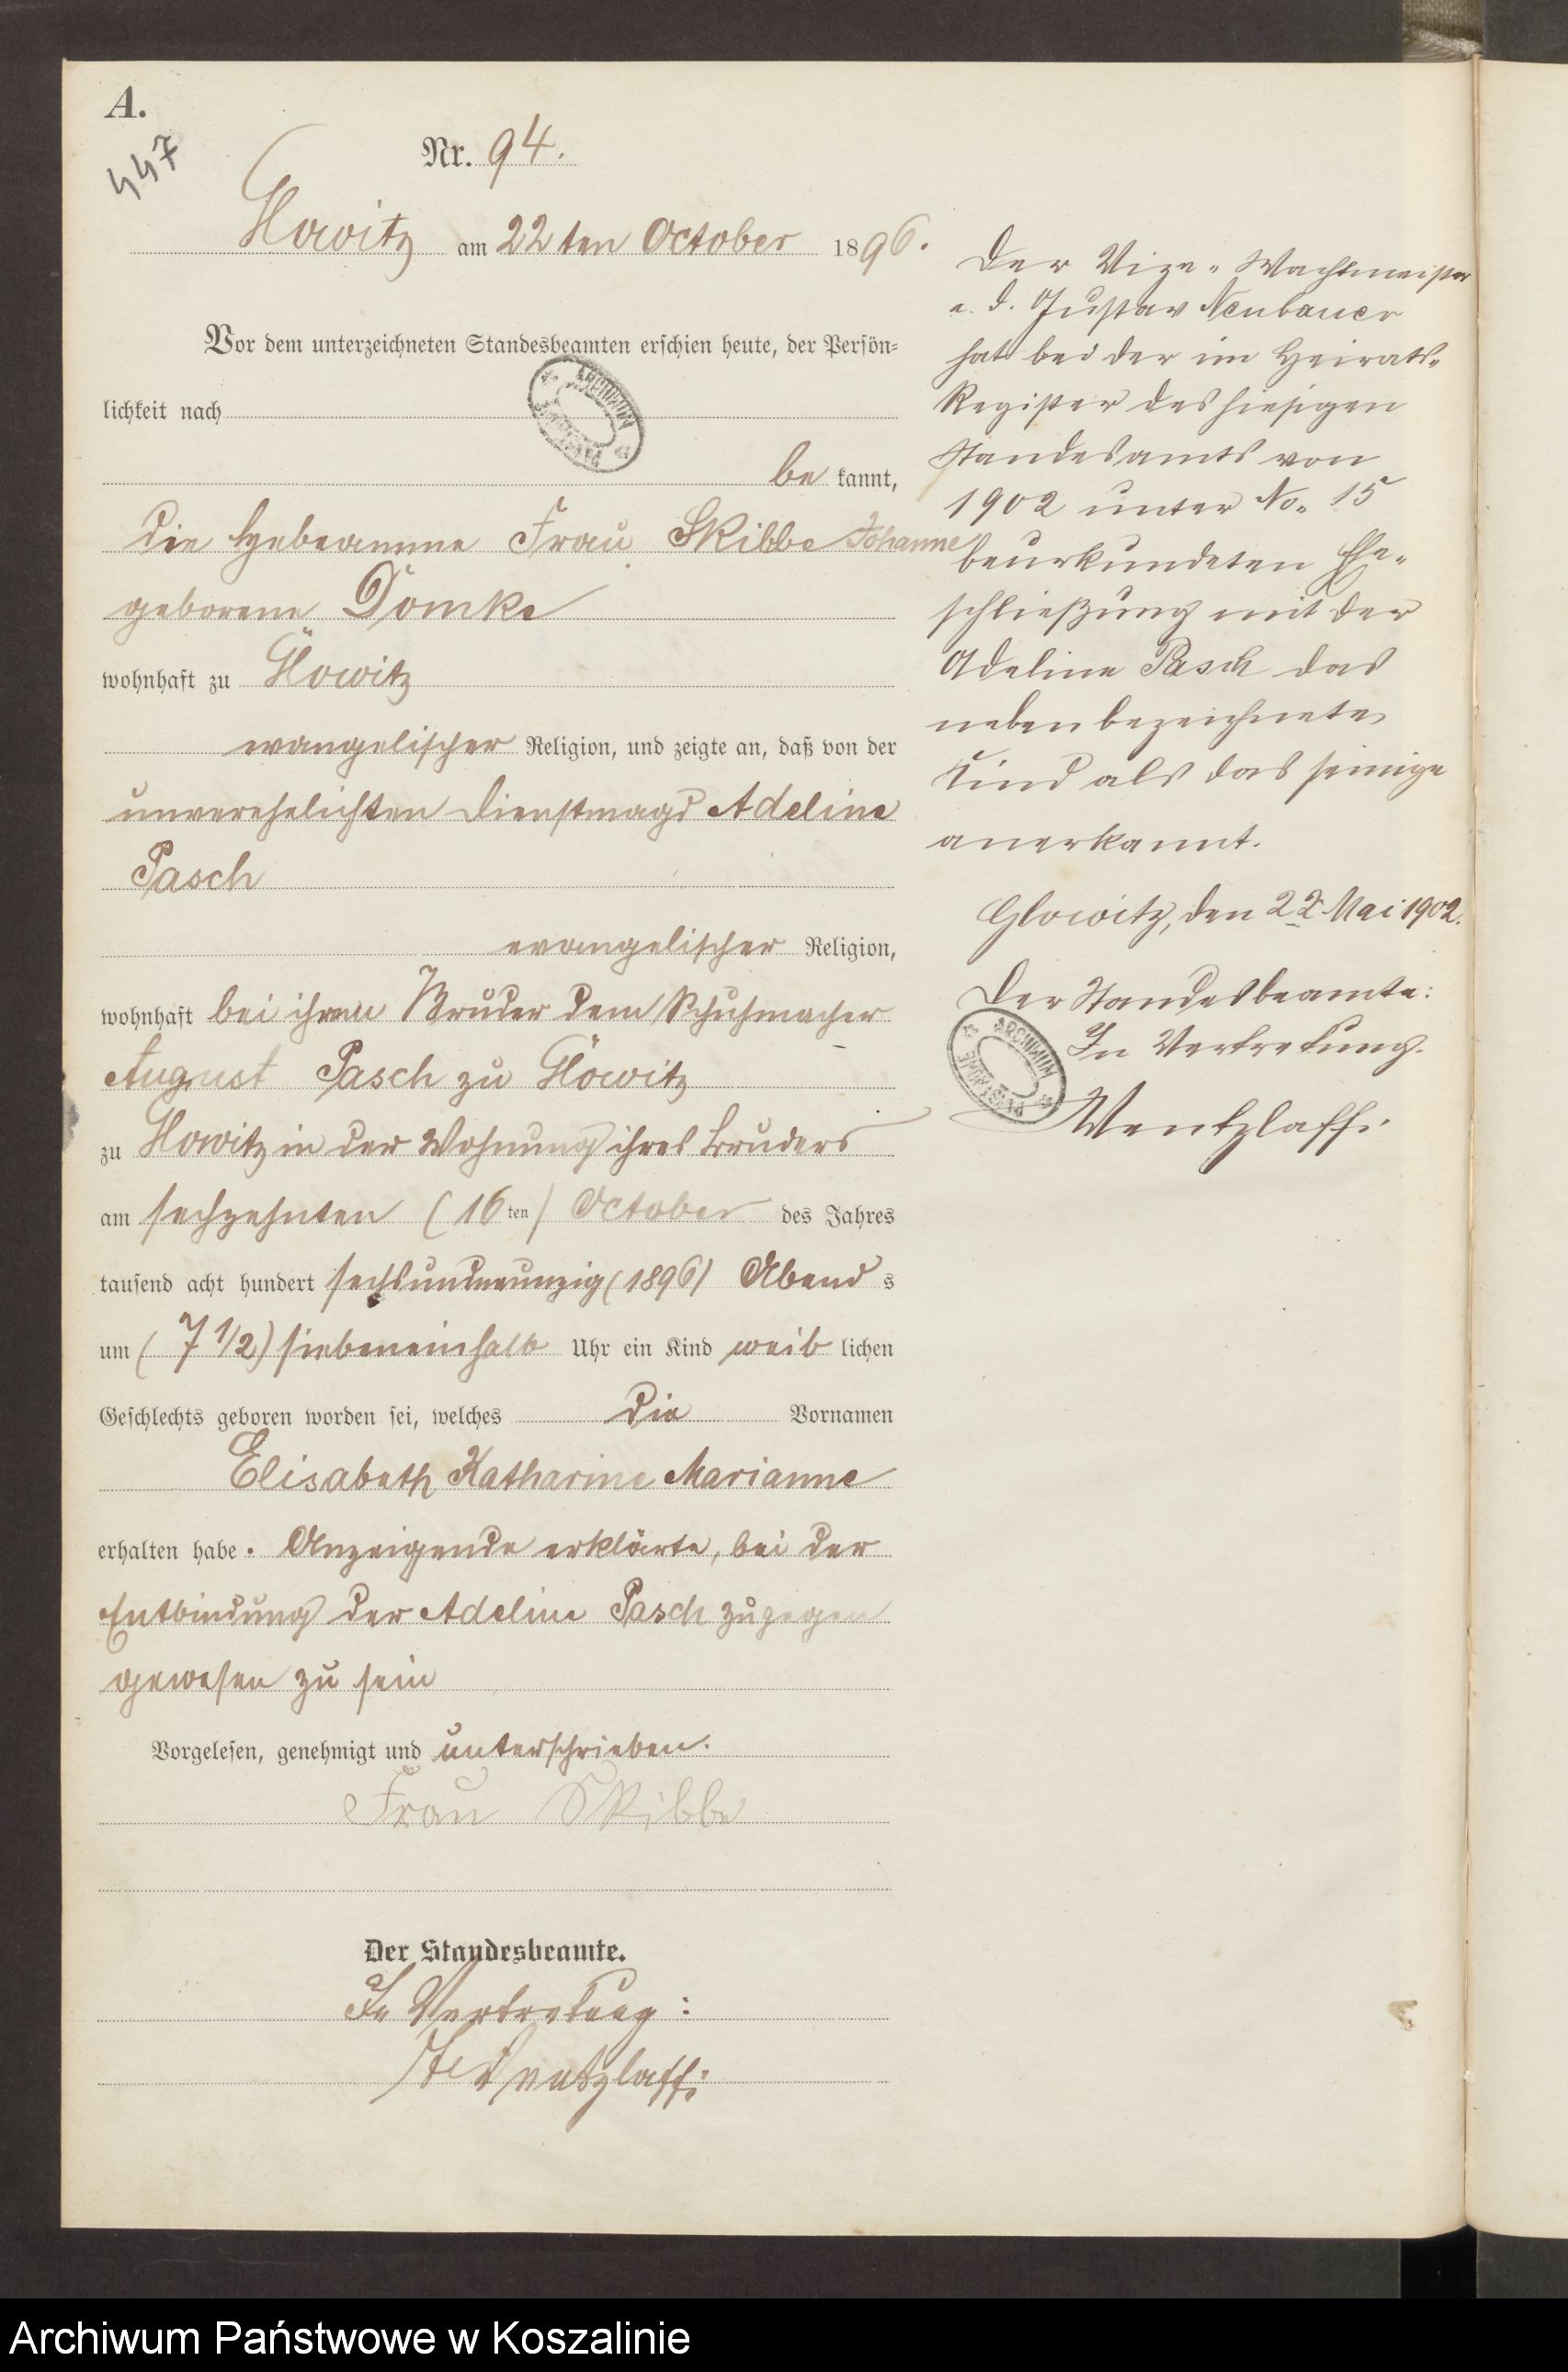 A.
447
Nr. 94.
Glowitz am 22ten October 1896.
Vor dem unterzeichneten Standesbeamten erschien heute, der Persön=
lichkeit nach
ARCHIWUM
be kannt,
die Hebeamme Frau Skibbe Johanne
geborene Domke
wohnhaft zu Glowitz
evangelischer Religion, und zeigte an, daß von der
unverehelichten Dienstmagd Adeline
Pasch
evangelischer Religion,
wohnhaft bei ihrem Bruder dem Schuhmacher
August Pasch zu Glowitz
zu Glowitz in der Wohnung ihres Bruders
am sechzehnten (16ten) October des Jahres
tausend acht hundert sechsundneunzig (1896) Abend s
um (7 1/2) siebeneinhalb Uhr ein Kind weib lichen
Geschlechts geboren worden sei, welches die Vornamen
Elisabeth Katharine Marianne
erhalten habe. Anzeigende erklärte, bei der
Entbindung der Adeline Pasch zugegen
gewesen zu sein
Vorgelesen, genehmigt und unterschrieben.
Frau Skibbe
Der Standesbeamte.
In Vertretung:
Wentzlaff.
Der Vize-Wachtmeister
a. d. Gustav Neubauer
hat bei der im Heirats-
Register des hiesigen
Standesamts von
1902 unter No. 15
beurkundeten Ehe-
schließung mit der
Adeline Pasch das
nebenbezeichnete
Kind als das seinige
anerkannt.
Glowitz, den 22. Mai 1902.
Der Standesbeamte:
In Vertretung.
ARCHIWUM
Wentzlaff.
Archiwum Państwowe w Koszalinie